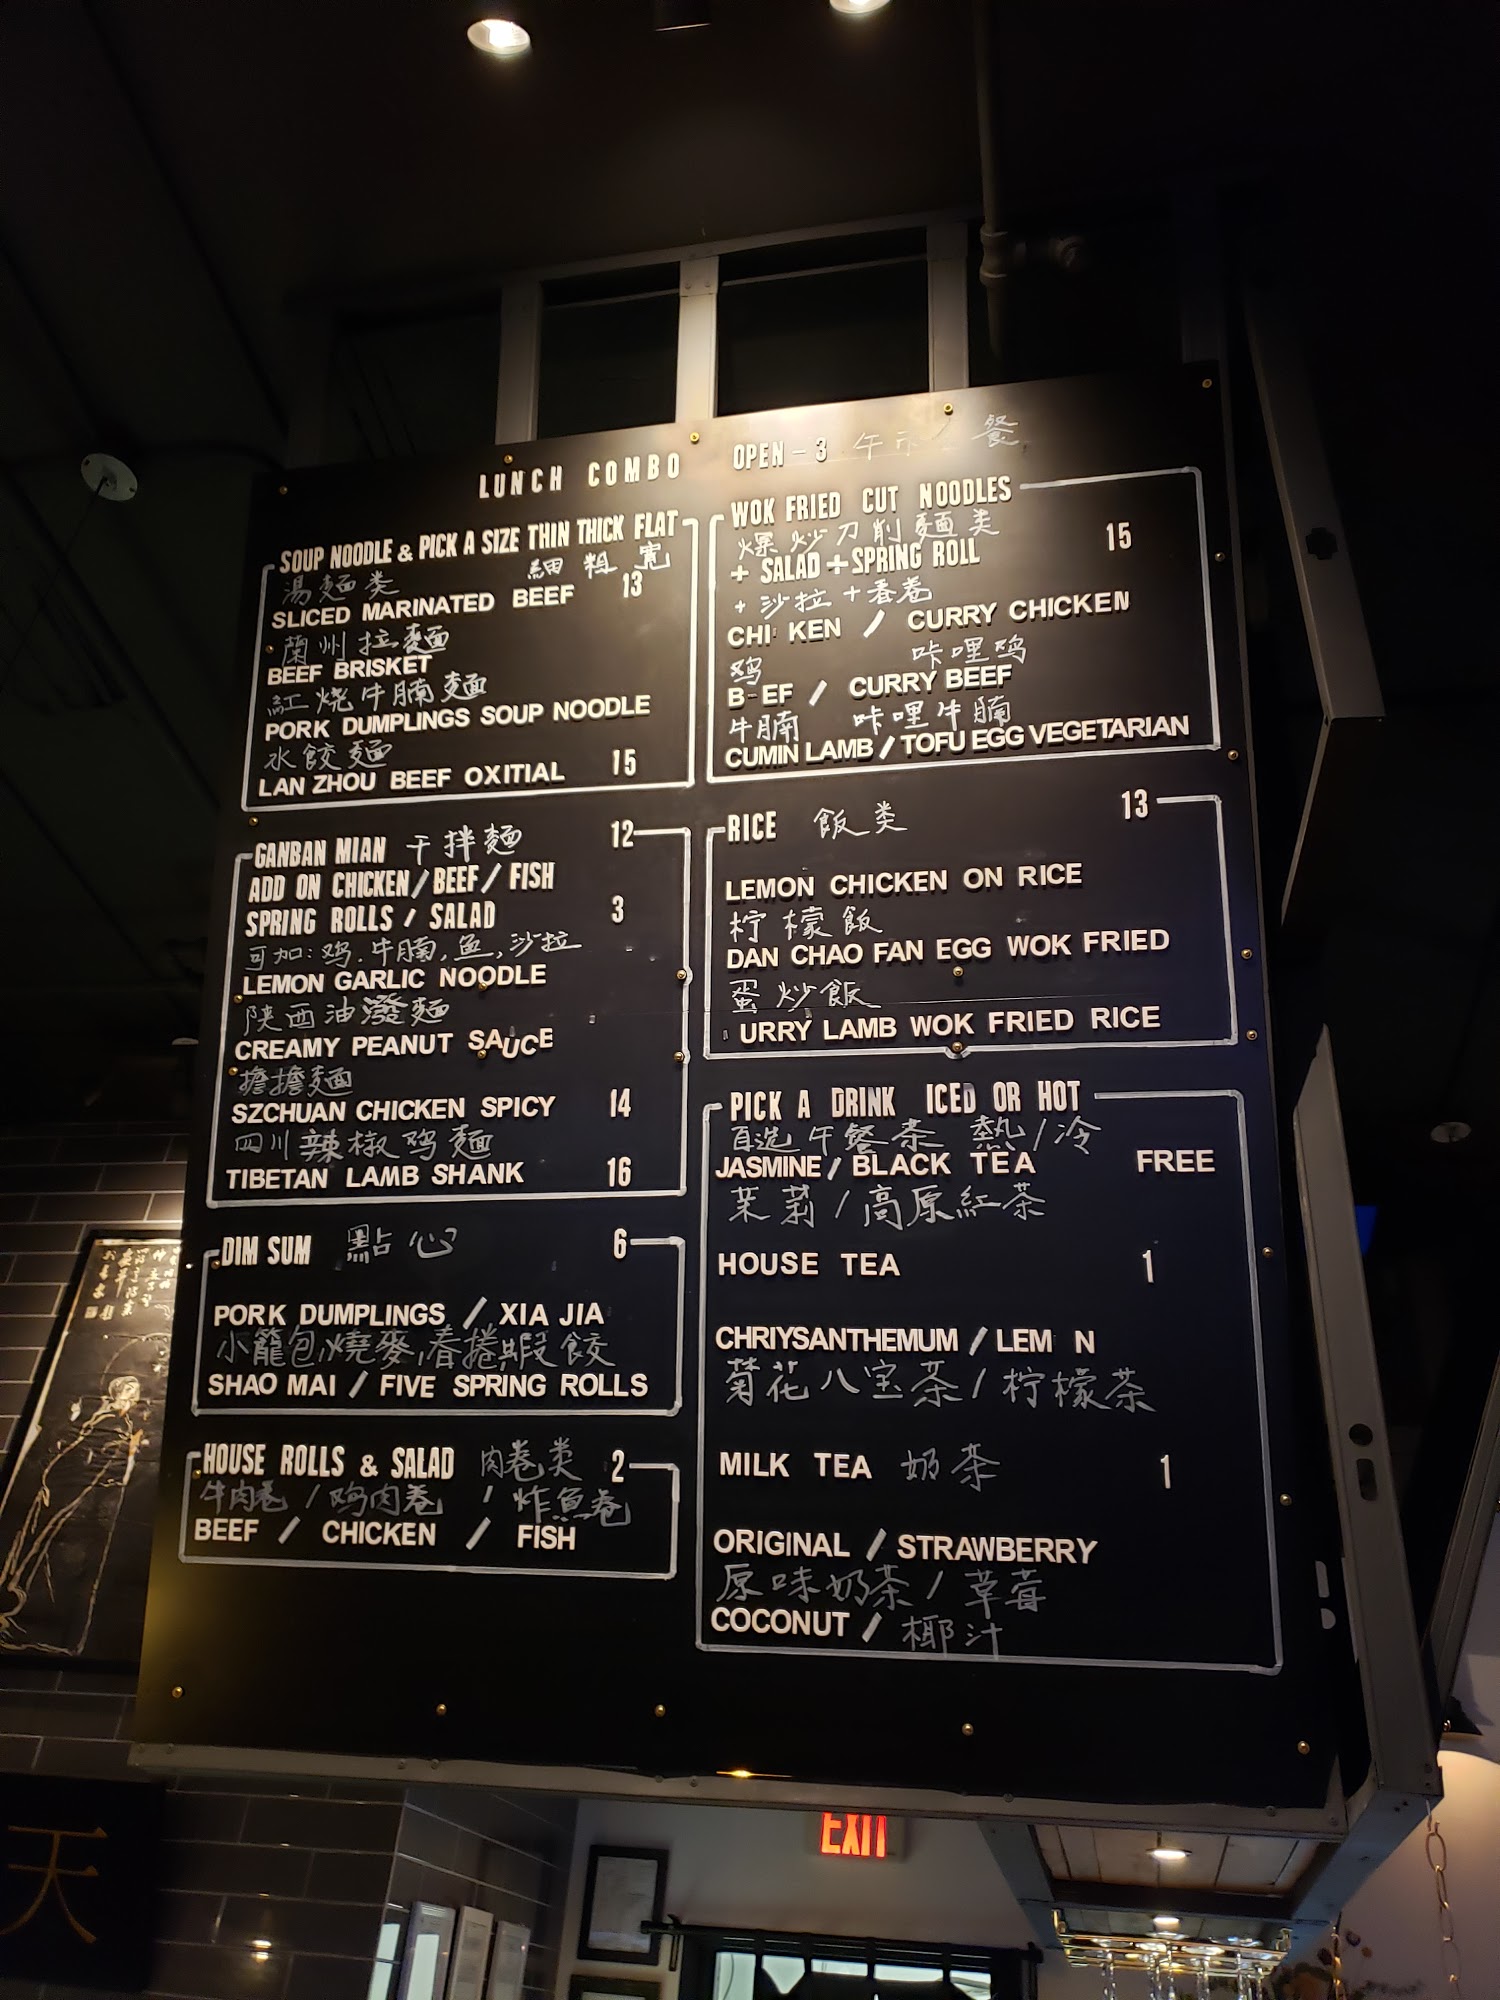 LUNCH COMBO OPEN - 3 午市 餐
SOUP NOODLE & PICK A SIZE THIN THICK FLAT
湯麵类 細 粗 寬
SLICED MARINATED BEEF 13
蘭州拉麵
BEEF BRISKET
紅烧牛腩麵
PORK DUMPLINGS SOUP NOODLE
水餃麵
LAN ZHOU BEEF OXITIAL 15
GANBAN MIAN 干拌麵 12
ADD ON CHICKEN/BEEF/FISH
SPRING ROLLS / SALAD 3
可加:鸡.牛腩,鱼,沙拉
LEMON GARLIC NOODLE
陕西油潑麵
CREAMY PEANUT SAUCE
擔擔麵
SZCHUAN CHICKEN SPICY 14
四川辣椒鸡麵
TIBETAN LAMB SHANK 16
DIM SUM 點心 6
PORK DUMPLINGS / XIA JIA
小籠包,燒麥,春捲,蝦餃
SHAO MAI / FIVE SPRING ROLLS
HOUSE ROLLS & SALAD 肉卷类 2
牛肉卷 / 鸡肉卷 / 炸魚卷
BEEF / CHICKEN / FISH
WOK FRIED CUT NOODLES
爆炒刀削麵类 15
+ SALAD + SPRING ROLL
+ 沙拉 + 春卷
CHI KEN / CURRY CHICKEN
鸡 咔哩鸡
B EF / CURRY BEEF
牛腩 咔哩牛腩
CUMIN LAMB / TOFU EGG VEGETARIAN
RICE 飯类 13
LEMON CHICKEN ON RICE
柠檬飯
DAN CHAO FAN EGG WOK FRIED
蛋炒飯
URRY LAMB WOK FRIED RICE
PICK A DRINK ICED OR HOT
自选午餐茶 熱/冷
JASMINE / BLACK TEA FREE
茉莉 / 高原紅茶
HOUSE TEA 1
CHRIYSANTHEMUM / LEM N
菊花八宝茶 / 柠檬茶
MILK TEA 奶茶 1
ORIGINAL / STRAWBERRY
原味奶茶 / 草莓
COCONUT / 椰汁
天
EXIT